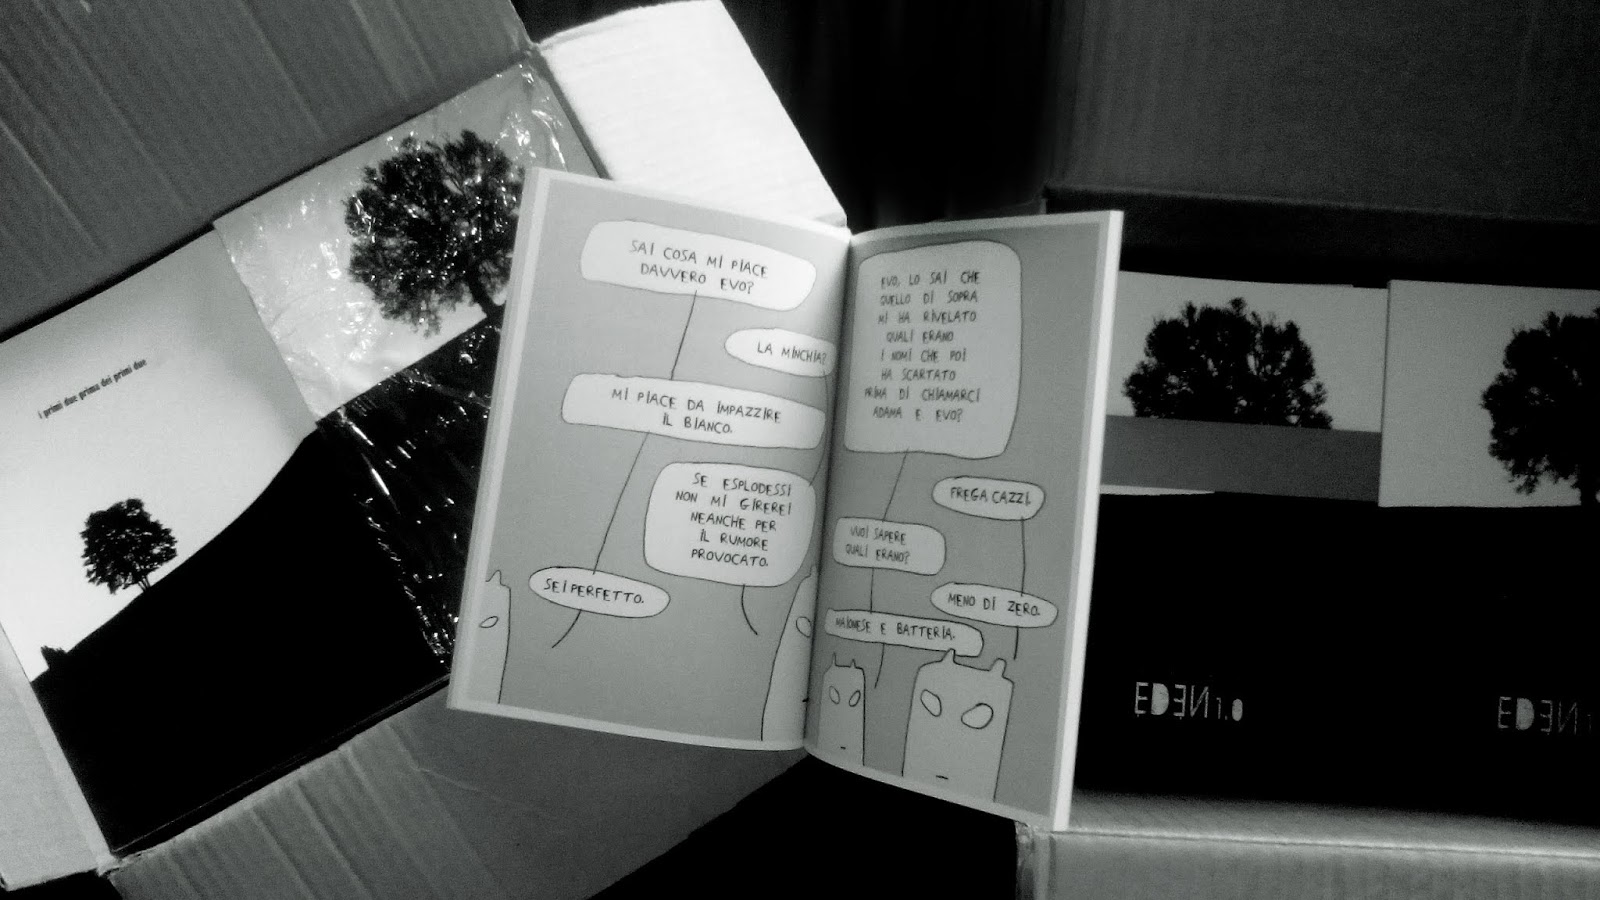 i primi due prima dei primi due
SAI COSA MI PIACE
DAVVERO EVO?
LA MINCHIA?
MI PIACE DA IMPAZZIRE
IL BIANCO.
SE ESPLODESSI
NON MI GIREREI
NEANCHE PER
IL RUMORE
PROVOCATO.
SEI PERFETTO.
EVO, LO SAI CHE
QUELLO DI SOPRA
MI HA RIVELATO
QUALI ERANO
I NOMI CHE POI
HA SCARTATO
PRIMA DI CHIAMARCI
ADAMA E EVO?
FREGA CAZZI.
VUOI SAPERE
QUALI ERANO?
MENO DI ZERO.
MAIONESE E BATTERIA.
EDEN 1.0
EDEN 1